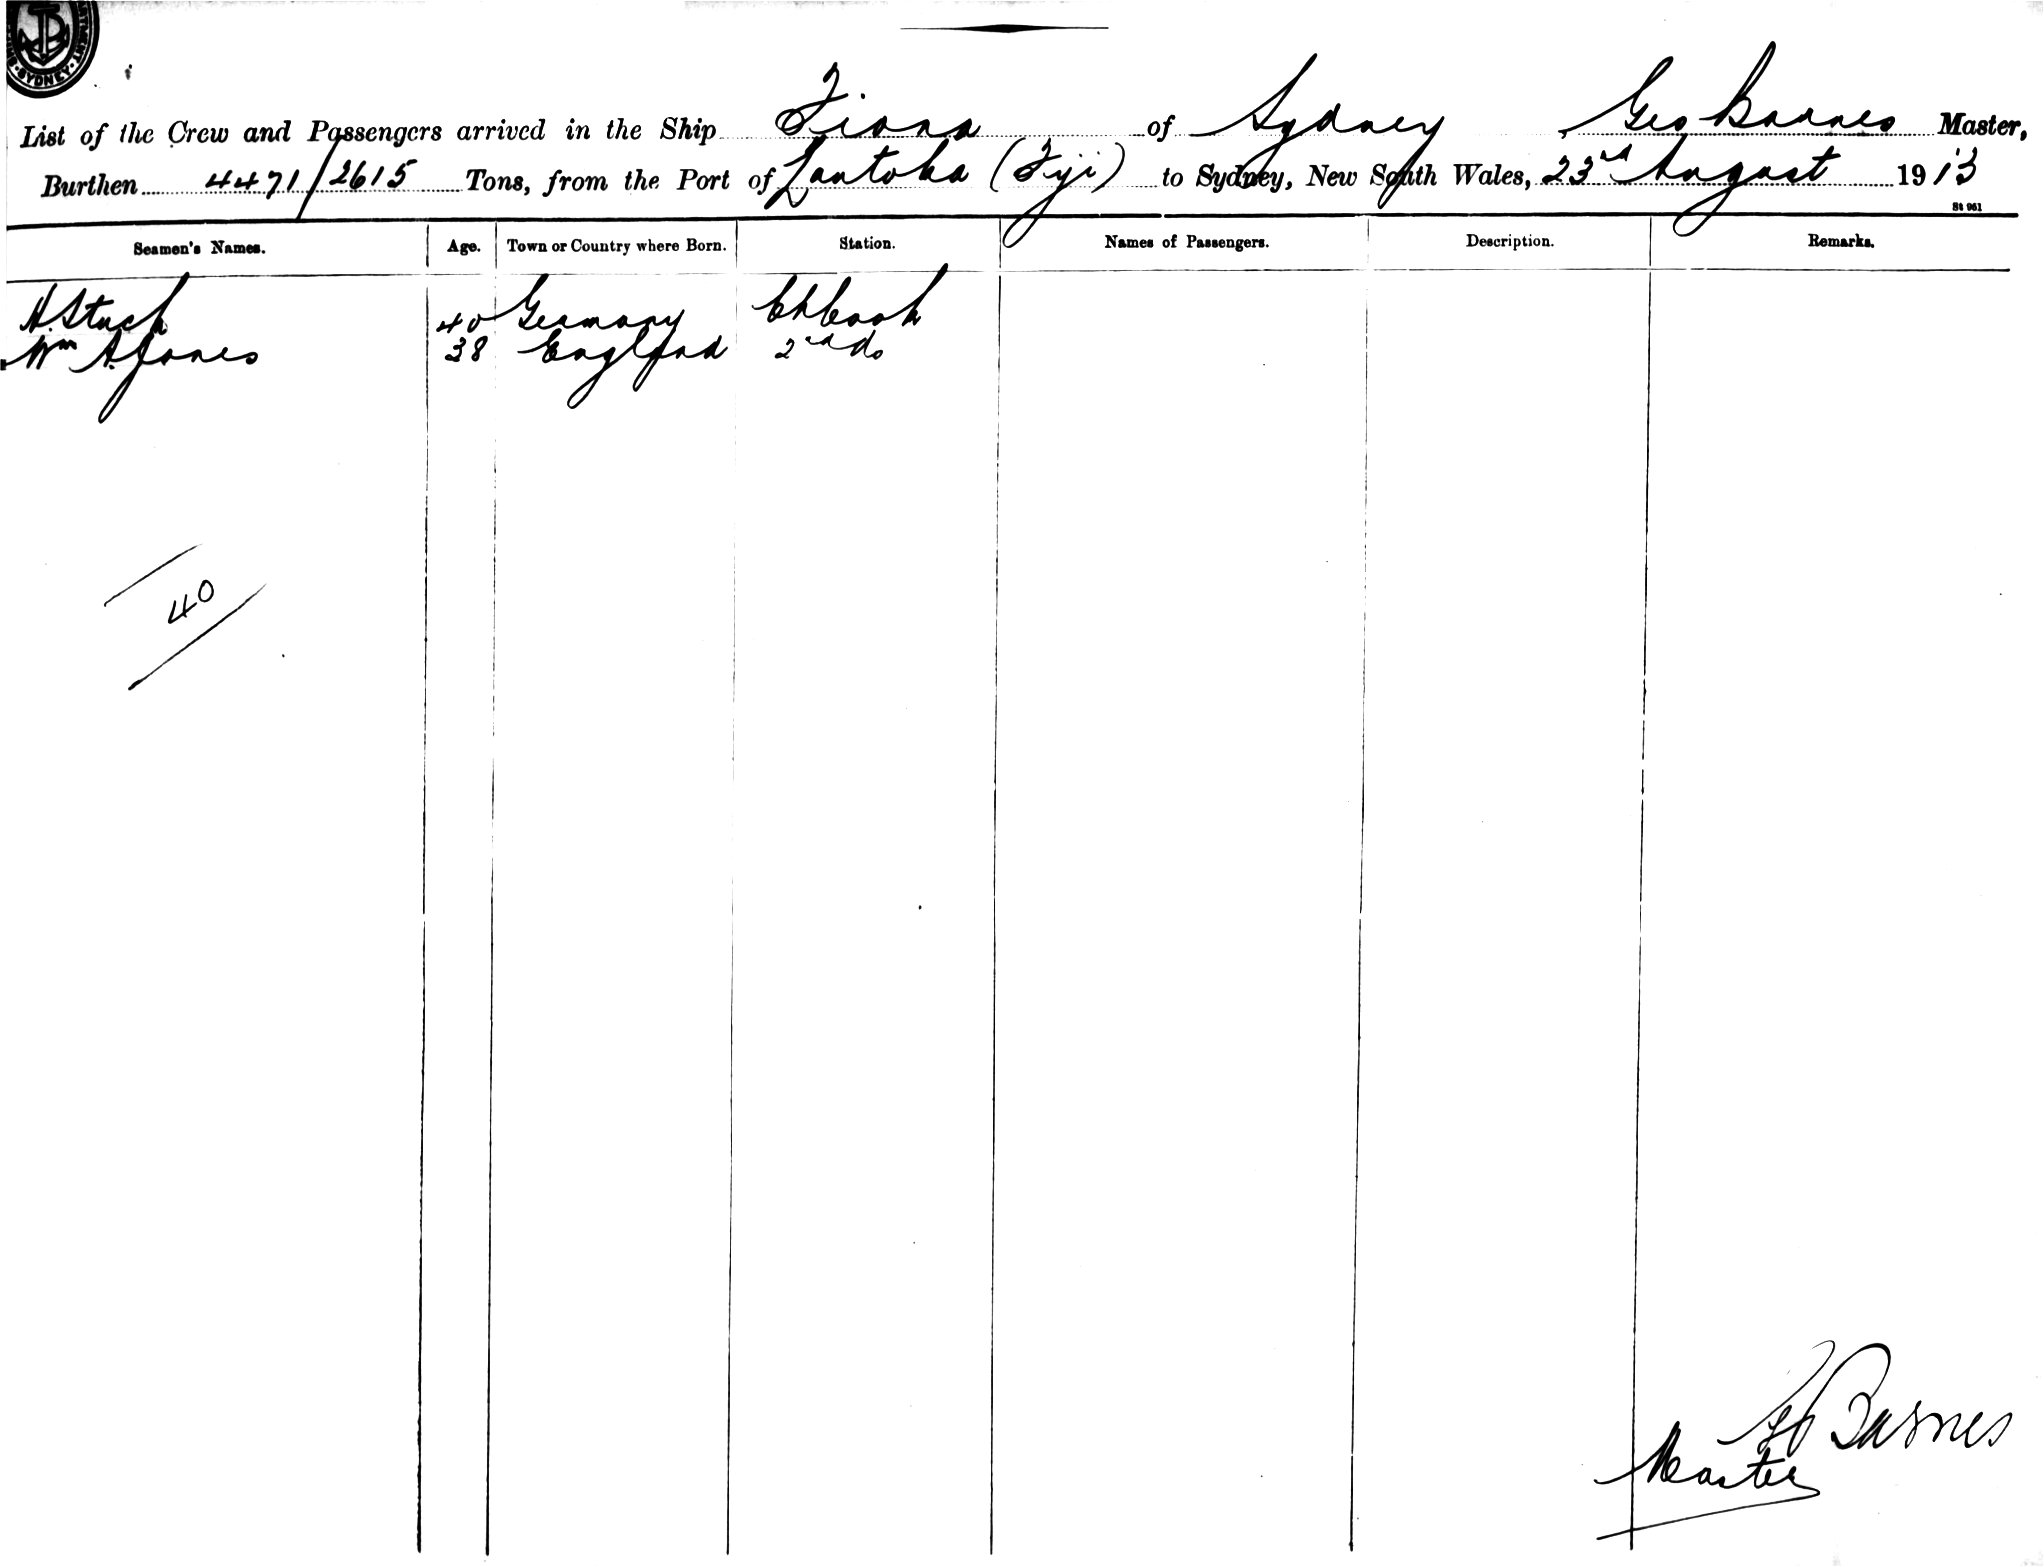 SYDNEY
List of the Crew and Passengers arrived in the Ship Fiona of Sydney Geo Barnes Master,
Burthen 4471/2615 Tons, from the Port of Lautoka (Fiji) to Sydney, New South Wales, 23rd August 1913
St 961
Seamen's Names. Age. Town or Country where Born. Station. Names of Passengers. Description. Remarks.
H. Stuck 40 Germany Ch Cook
Wm A. Jones 38 England 2nd do
40
Barnes
Master